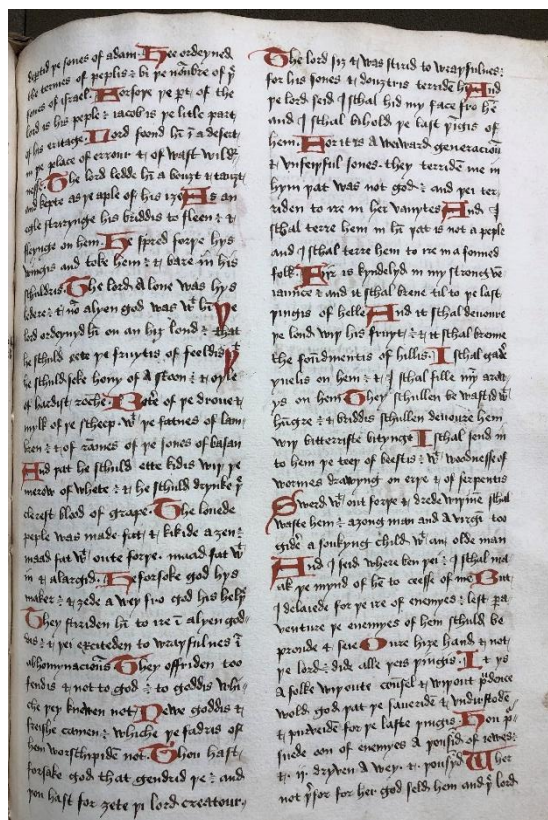 deptid þe sones of adam. Hee ordeyned
the termes of peplis: bi þe nōbre of þͤ
sones of israel. Forsoþe þe pt of the
lord is his peple: iacob is þe litle part
of his eritage. Lord foond hī ī a desert
in þe place of errour & of wast wild
nesse. The lord ledde hī a bouzt & tauzt
and kepte as þe aple of his ize. As an
egle stirynge his briddis to fleen: &
fleynge on hem. He spred forþe hys
wingis and toke hem: & bare in his
schuldris. The lord a lone was hys
ledere: & no alyen god was wͭ hī. Þe
lord ordeynyd hī on an hiz lond: that
he schuld eete þe fruytis of feeldis. Þͭ
he schuld soke hony of a stoon: & oyle
of hardist roche. Botͤr of þe droue &
mylk of þe scheep. wͭ þe fatnes of lam
bren: & of rāmes of þe sones of basan
And þat he schuld ette kidis wiþ þe
merow of whete: & he schuld drynke þͤ
clerest blood of grape. The louede
peple was maad fat: & kikide azen:
maad fat wͭ oute forþe. maad fat wͭ
in & alargid. He forsoke god hys
maker: & zede a wey fro god his helþ
They stirriden hī to ire ī alyen god
dis: & þei exciteden to wrayfulnes ī
abhomynacioūs. They offriden too
fendis & not to god: to goddis whi
che þey knewen not. Newe goddis &
freishe camen: whiche þe fadris of
hem worschpide not. Thou hast
forsake god that gendrid þe: and
þou hast for zete þi lord creatour.
The lord siz & was stirid to wrayfulnes:
for his sones & douztris terride hī. And
þe lord seid I sthal hid my face fro hē
and I sthal bihold þe last þīgis of
hem. For it ys a weward generacioū
& vnfeiþful sones. they terride me in
hym þat was not god: and þei ter
riden to ire in her vanytes. And I
sthal terre hem in hī þat is not a peple
and I sthal terre hem to ire in a fonned
folk. Fijr is kyndelyd in my stronge ve
iaunce & and it sthal brene til to þe last
þingis of helle. And it sthal deuoure
þe lond wiþ his fruyt: & it sthal brenne
the foūdmentis of hillis. I sthal gadͤ
yuelis on hem: & I sthal fille my arow
ys on hem. They schullen be wastid wͭ
hūgre: & briddis schullen deuoure hem
wiþ bitterriste bitynge. I sthal send in
to hem þe teeþ of beestis: wͭ woodnesse of
wormes drawyng on erþe & of serpentis
Swerd wͭ out forþe & drede wiþīne sthal
waste hem: azong man and a virgī too
gidͤ, a soukyng child wͭ an olde man
And I seid where ben þei: I sthal ma
ak þe mynd of hē to ceesse of me. But
I delaiede for þe ire of enemyes: lest pa
venture þe enemyes of hem schuld be
proude & seie. Oure hize hand & not
þe lord: dide alle þeis þingis. It ys
a folke wiþoute coūsel & wiþout pͬdence
wold god þat þe saueride & vndirstode
& puruede for þe laste þingis. Hou p
suede oon of enemyes a þousēd of iewes:
& .ii. dryven a wey .x. þousēd. Wher
not þͤfor for her god seld hem and þͤ lord